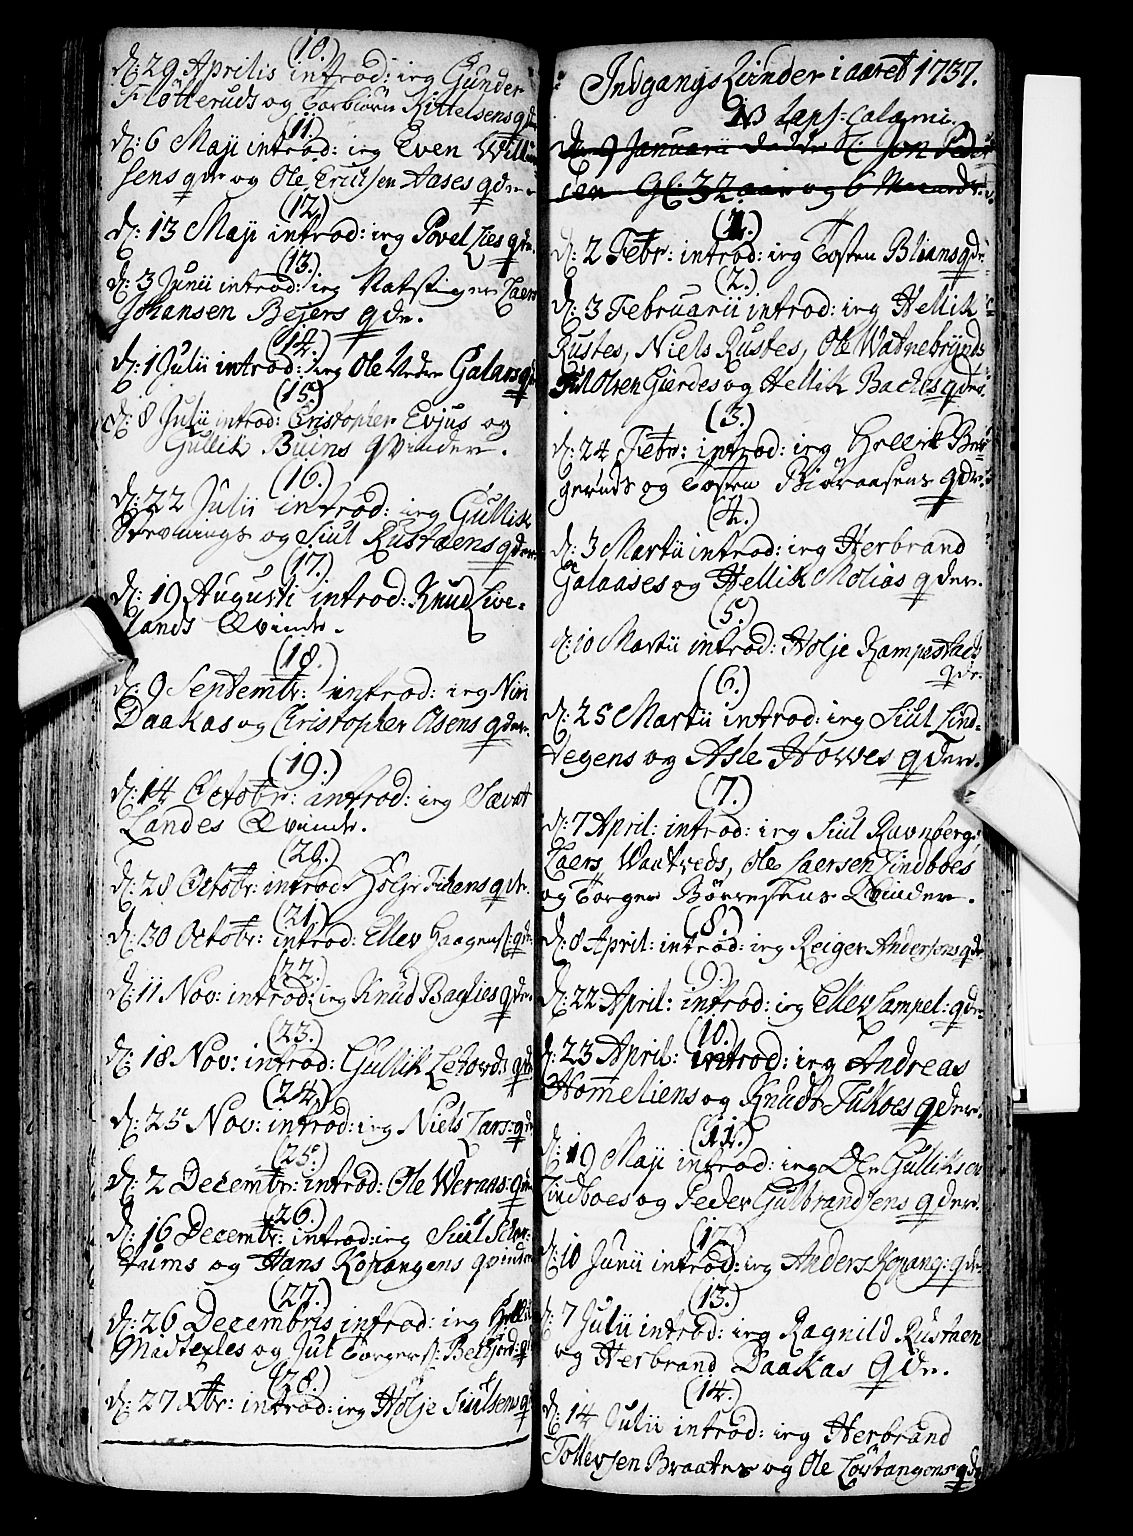 (10.)
d: 29 Aprilis introd: ieg Gunder
Flötteruds og Torbiörn Kittelsens qdr
(11.)
d: 6 Maji introd: ieg Even Will
sens qdr og Ole Ericksen Aases qdre
(12.)
d: 13 Maji introd: ieg Povel Lies qdr.
(13.)
d: 3 Junii introd: ieg Laers
Johansen Bejers qdr.
(14.)
d: 1 Julii introd: ieg Ole Galaas qdr
(15.)
d: 8 Julii introd: Cristopher Evjus og
Gullik Buins qvinder.
(16.)
d: 22 Julii introd: ieg Gullik
og Siul Rustaens qder.
(17.)
d: 19 Augusti introd: Knud Live-
lands Qvinde.
(18.)
d: 9 Septembr: introd: ieg Niri
Daakas og Christopher Olsens qder.
(19.)
d: 14 Octobr: introd: ieg Sævat
Landes Qvinde.
(20.)
d: 28 Octobr: introd: Holje Fikens qdr.
(21.)
d: 30 Octobr: introd: Ellev Haagens: qdr
(22.)
d: 11 Nov: introd: ieg Knud Baglies qdr
(23.)
d: 18 Nov: introd: Gullik qdr
(24.)
d: 25 Nov: introd: ieg Niels Lars: qdr
(25.)
d: 2 Decembr: introd: Ole Weraas: qdr
(26.)
d: 16 Decembr: introd: ieg Siul
tums og Hans Kopangens qvinder
(27.)
d: 26 Decembris introd: ieg
og Jul Torgers: qdr
(28.)
d: 27 Xbr: introd: ieg Holje Siulsens qdr
Indgangs Quinder i aaret 1737.
NB Laps: Calami.
d: 9 Januarii Jon Peder
sen Gl: 32 aar og 6 Maaneder.
(1.)
d: 2 Febr: introd: ieg Tosten Blians qdr.
(2.)
d: 3 Februarii introd: ieg Hellik
Rustes, Niels Rustes, Ole Watnebrynds
Olsen Gierdes og Hellik Baches qdre
(3.)
d: 24 Febr: introd: ieg
geruds og Tosten Biöraasens qdr.
(4.)
d: 3 Martii introd: ieg Herbrand
Galaases og Hellik Molias qder.
(5.)
d: 10 Martii introd: Holje Kampestads
qdr.
(6.)
d: 25 Martii introd: ieg Siul Lind-
tegens og Asle Howes qder.
(7.)
d: 7 April: introd: ieg Siul Ravnbergs,
Laers Waatveds, Ole Laersen Lindboes
og Torger Börresens Quinder.
(8.)
d: 8 April: introd: ieg Reiger Andersens qdr
(9.)
d: 22 April: introd: ieg Ellev Lampel: qdr.
(10.)
d: 23 April: introd: ieg Andreas
Homeliens og Knudt Fukoes qder.
(11.)
d: 19 Maji introd: ieg Ole Gulliksen
Lindboes og Peder Gulbrandsens qder.
(12.)
d: 10 Junii introd: ieg Anders Kopang: qdr.
(13.)
d: 7 Julii introd: ieg Ragnild Rustaen
og Herbrand Daakas qdr.
(14.)
d: 14 Julii introd: ieg Herbrand
Tollevsen Braaten og Ole Lovtangens qdr